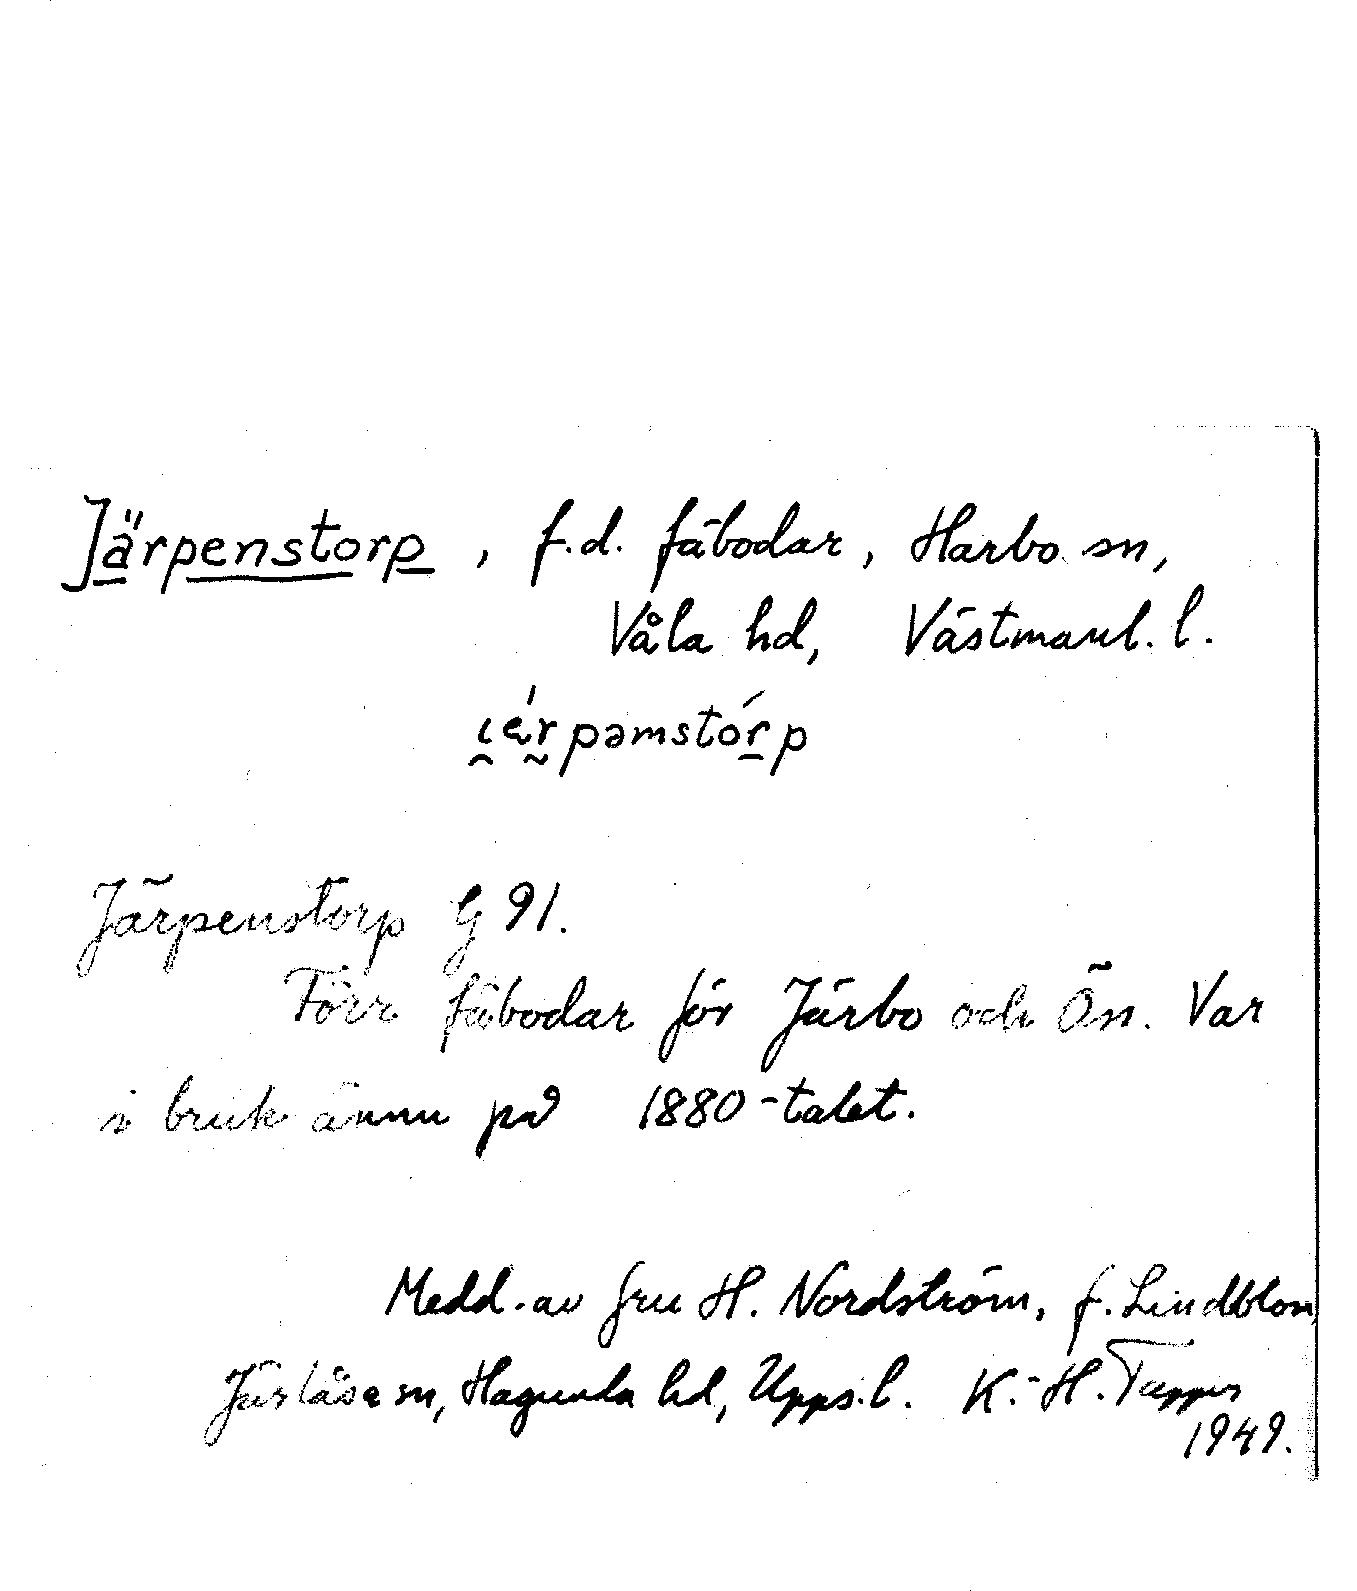 Järpenstorp, f.d. fäbodar, Harbo sn,
Våla hd, Västmanl. l.
Järpenstorp G 91.
Förr fäbodar för Järbo och Ön. Var
i bruk ännu på 1880-talet.
Medd. av fru H. Nordström, f. Lindblom,
Järlåsa sn, Hagunda hd, Upps. l. K.-H.
1949.